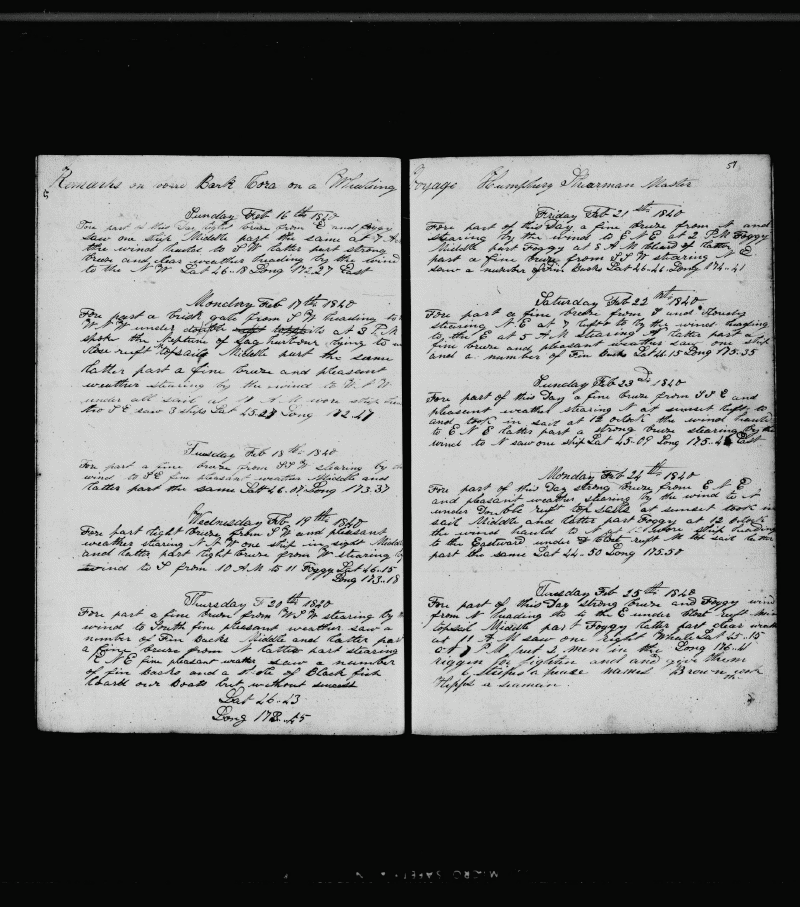 Remarks on board Bark Cora on a Whaling
Sunday Feb 16th 1840
Fore part of this Day light breeze from E and foggy
saw one ship Middle part the same at 7 A M
the wind hauled to S W latter part strong
breeze and clear weather heading by the wind
to the N W Lat 46-18 Long 172 27 East
Monday Feb 17th 1840
Fore part a brisk gale from S W heading to
W N W under double at 3 P.M
spoke the Neptune of Sag harbour lying to
close reeft topsails Middle part the same
latter part a fine breeze and pleasant
weather stearing by the wind to W S W
under all sail at 10 A M wore ship
the S E saw 3 ships Lat 45-27 Long 172-47
Tuesday Feb 18th 1840
Fore part a fine breeze from S S W stearing by
wind to S E fine pleasent weather Middle and
latter part the same Lat 46.07 Long 173.37
Wednesday Feb 19th 1840
Fore part light breeze from S W and pleasent
weather stearing N N W one ship in sight Middle
and latter part light breeze from W stearing
wind to S from 10 A M to 11 Foggy Lat 46-15
Long 173-18
Thursday F 20th 1840
Fore part a fine breeze from W S W stearing by
wind to South fine pleasent weather saw a
number of Fin Backs Middle and latter part
a fine breeze from N latter part stearing
E N E fine pleasent weather saw a number
of fin backs and a of Black fish
loard our Boats but without
Lat 46-43
Long 173-45
51
Voyage Humphrey Shearman Master
Friday Feb 21 st 1840
Fore part of this Day a fine breeze from N and
stearing by the wind to E N E at 2 P.M Foggy
Middle part Foggy at 8 A M latter
part a fine breeze from S W stearing N E
saw a number of Fin Backs Lat 46-46 Long 174-41
Saturday Feb 22 1840
Fore part a fine breeze from S and cloudy
stearing N E at 7 to by the wind heading
to the E at 5 A M stearing N latter part a
fine breeze and pleasent weather saw one ship
and a number of Fin backs Lat 46-15 Long 175-35
Sunday Feb 23d 1840
Fore part of this Day a fine breeze from S S E and
pleasent weather stearing N at sunset to
and took in sail at 12 oclock the wind hauled
to E N E latter part a strong breeze stearing by the
wind to N saw one ship Lat 45-09 Long 175-4 East
Monday Feb 24th 1840
Fore part of this Day strong breeze from E N E
and pleasent weather stearing by the wind to N
under Double reeft top sails at sunset took in
sail Middle and latter part Foggy at 12 oclock
the wind hauled to N at wore ship heading
to the Eastward under close reeft M top sail latter
part the same Lat 44-50 Long 175.50
Tuesday Feb 25th 1840
Fore part of this Day strong breeze and Foggy wind
from N heading to the E under close reeft main
topsail Middle part Foggy latter part clear weather
at 11 A M saw one right Whale Lat 45-15
at 7 P M put 2 men in the Long 176-41
riggin for fighton and and give them
6 stripes a peace named Brown cook
a seaman